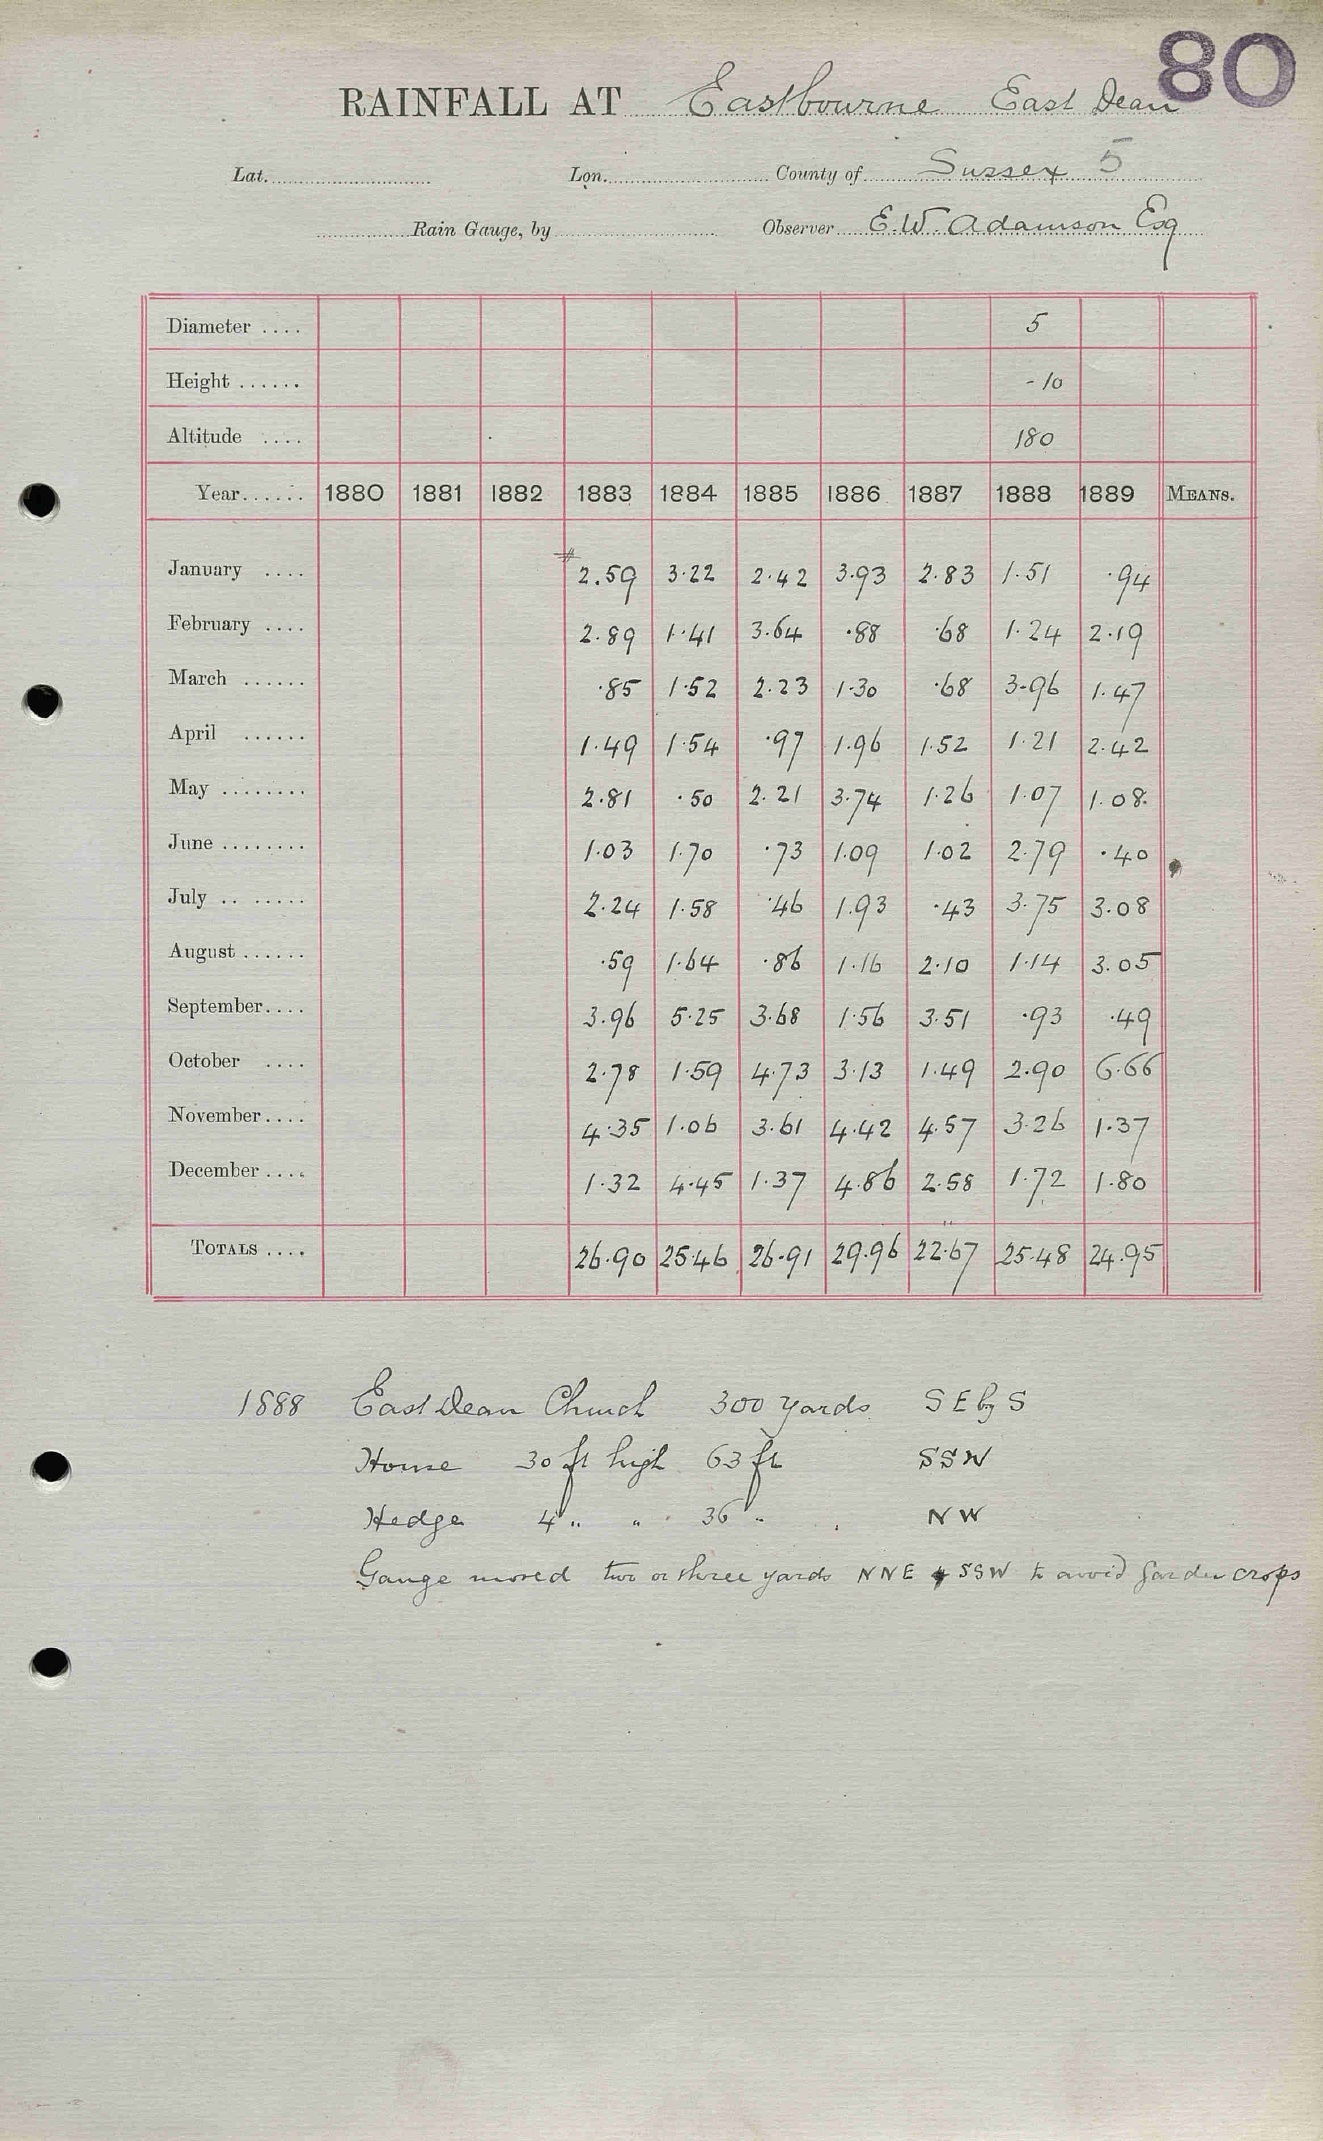 80
RAINFALL AT Eastbourne East Dean
Lat. Lon. County of Sussex 5
Rain Gauge, by Observer E.W. Adamson Esq
Diameter .... 5
Height ...... -10
Altitude .... 180
Year...... 1880 1881 1882 1883 1884 1885 1886 1887 1888 1889 MEANS.
January .... # 2.59 3.22 2.42 3.93 2.83 1.51 .94
February .... 2.89 1.41 3.64 .88 .68 1.24 2.19
March ...... .85 1.52 2.23 1.30 .68 3.96 1.47
April ...... 1.49 1.54 .97 1.96 1.52 1.21 2.42
May ........ 2.81 .50 2.21 3.74 1.26 1.07 1.08
June ........ 1.03 1.70 .73 1.09 1.02 2.79 .40
July .. ..... 2.24 1.58 .46 1.93 .43 3.75 3.08
August ...... .59 1.64 .86 1.16 2.10 1.14 3.05
September.... 3.96 5.25 3.68 1.56 3.51 .93 .49
October .... 2.78 1.59 4.73 3.13 1.49 2.90 6.66
November.... 4.35 1.06 3.61 4.42 4.57 3.26 1.37
December .... 1.32 4.45 1.37 4.86 2.58 1.72 1.80
TOTALS .... 26.90 25.46 26.91 29.96 22.67 25.48 24.95
1888 East Dean Church 300 yards S E by S
House 30 ft high 63 ft SSW
Hedge 4 " " 36 " NW
Gauge moved two or three yards NNE & SSW to avoid garden crops